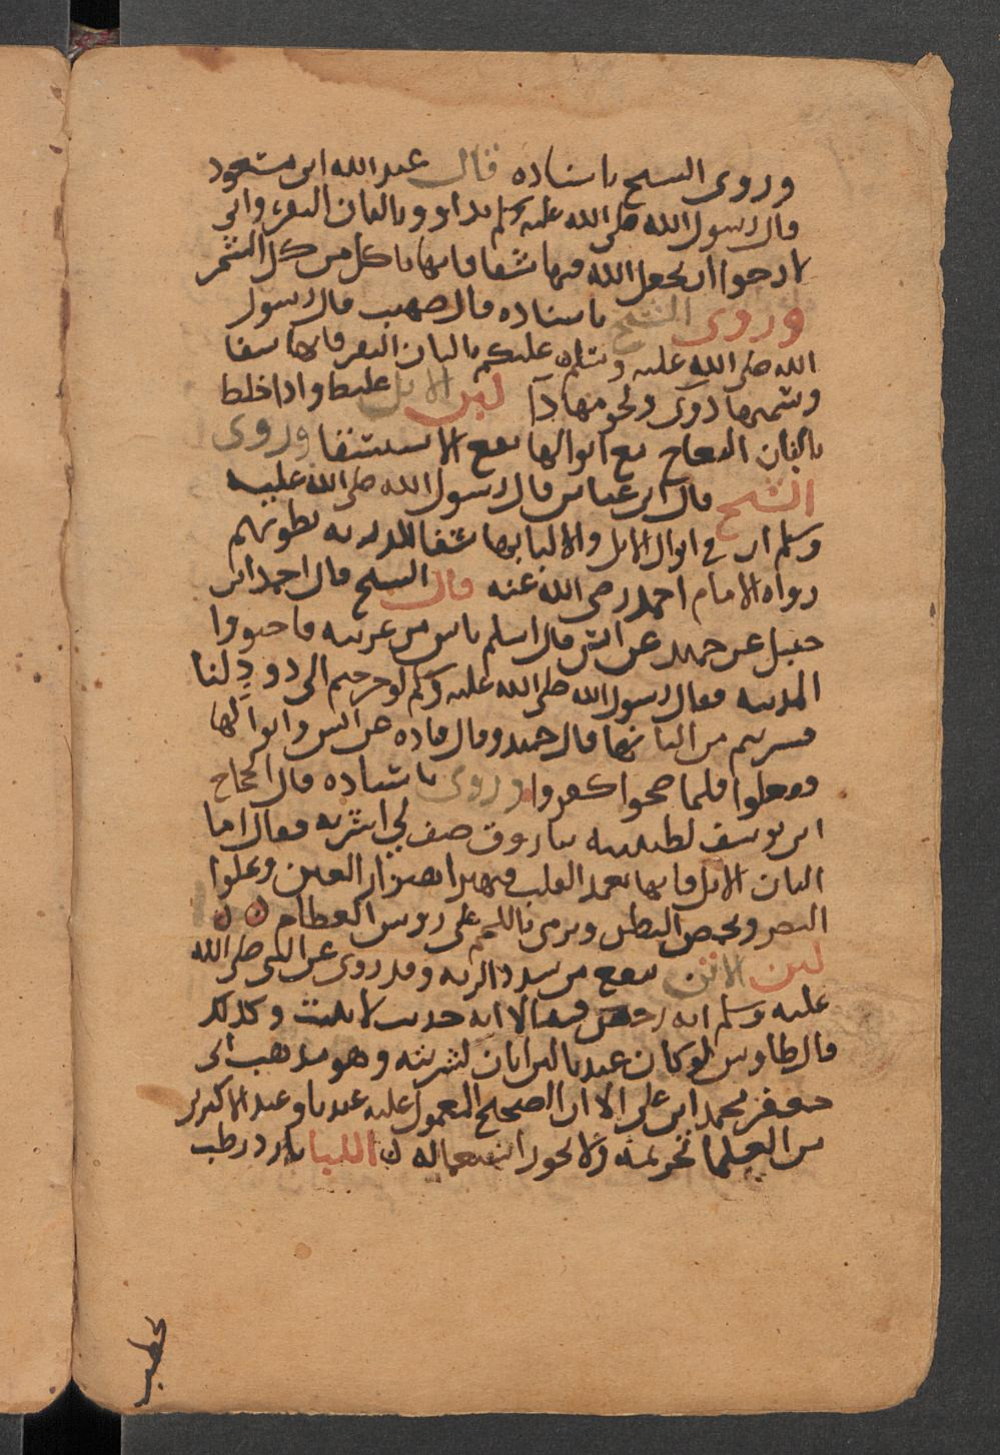 وروى الشيخ باسناده قال عبد الله ابن مسعود
قال رسول الله صلى الله عليه وسلم تداووا بالبان البقر واني
لارجوا ان يجعل الله فيها شفا فانها تاكل من كل الشجر
وروى الشيخ باسناده قال صهيب قال رسول
الله صلى الله عليه وسلم عليكم بالبان البقر فانها شفا
وسمنها دوى ولحومها دآ لبن الابل غليظ واذا خلط
بالبان اللقاح مع ابوالها نفع الاستسقا وروى
الشيخ قال ابن عباس قال رسول الله صلى الله عليه
وسلم ان في ابوال الابل والالبانها شفا للذربه بطونهم
رواه الامام احمد رضى الله عنه قال الشيخ قال احمد ابن
حنبل عن حميد عن انس قال اسلم ناس من عرينه فاجتووا
المدينه فقال رسول الله صلى الله عليه وسلم لو خرجتم الى ذود لنا
فشربتم من البانها قال حميد وقال قتاده عن انس وابوالها
ففعلوا فلما صحوا كفروا وروى باسناده قال الحجاج
ابن يوسف لطبيبه تياذوق صف لي اشربه فقال اما
البان الابل فانها تعمد القلب العين وتجلوا
البصر البطن وترمى باللحم على رووس العظام ن ن
لبن الاتن ينفع من الريه وقد روى عن النبى صلى الله
عليه وسلم انه رخص فيه الا انه حديث لا يثبت وكذلك
قال طاوس لو كان عندنا البان لشربته وهو مذهب ابى
جعفر محمد ابن على الا ان الصحيح المعمول عليه عندنا وعند الاكثرين
من العلما تحريمه ولا يجوز استعماله ن اللبا بارد رطب